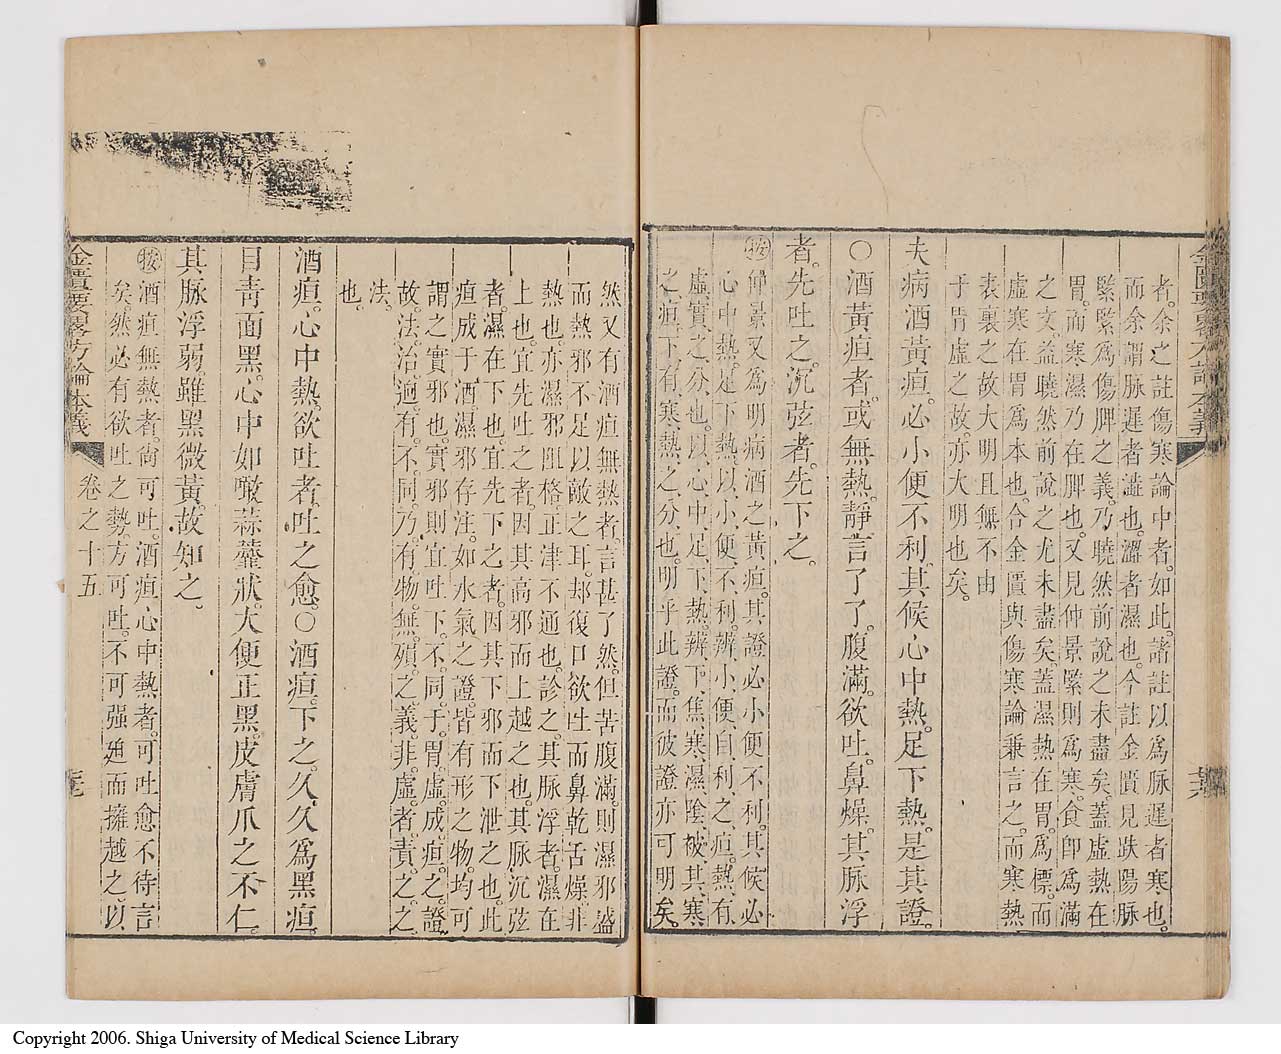 者余之註傷寒論中者。如此。諸註以爲脈遲者寒也。
而余謂脈遲者澁也。澀者濕也。今註金匱見趺陽脈
緊。緊爲傷脾之義。乃曉然前說之未盡矣。蓋虛熱在
胃。而寒濕乃在脾也。又見仲景緊則爲寒。食卽爲滿
之文。益曉然前說之尤未盡矣。蓋濕熱在胃。爲標。而
虛寒在胃爲本也。合金匱與傷寒論兼言之。而寒熱
表裏之故大明。且無不由
于胃虛之故。亦大明也矣。
夫病酒黃疸。必小便不利。其候心中熱。足下熱。是其證。
○酒黃疸者。或無熱。靜言了了。腹滿。欲吐。鼻燥。其脈浮
者。先吐之。沉弦者。先下之。
按仲景又爲明病酒之黃疸。其證必小便不利。其候必
心中熱。足下熱。以小便不利。辨小便自利之疸。熱有
虛實之分也。以心中足下熱。辨下焦寒濕陰被其寒
之疸。下有寒熱之分也。明乎此證。而彼證亦可明矣。
然又有酒疸無熱者。言甚了然。但苦腹滿。則濕邪盛
而熱邪不足以敵之耳。却復口欲吐而鼻乾舌燥。非
熱也。亦濕邪阻格。正津不通也。診之。其脈浮者。濕在
上也。宜先吐之者。因其高邪而上越之也。其脈沉弦
者。濕在下也。宜先下之者。因其下邪而下泄之也。此
疸成于酒。濕邪存注。如水氣之證。皆有形之物。均可
謂之實邪也。實邪則宜吐下。不同于胃虛成疸之證
故。法治逈有不同。乃有物無殞之義。非虛者。責之之
法
也。
酒疸。心中熱。欲吐者。吐之愈。○酒疸。下之。久久爲黑疸。
目靑面黑。心中如噉蒜虀狀。大便正黑。皮膚爪之不仁。
其脈浮弱。雖黑微黃。故知之。
按酒疸無熱者。尙可吐。酒疸心中熱者。可吐愈不待言
矣。然必有欲吐之勢。方可吐。不可强廹而擁越之。以
金匱要畧方論本義
卷之十五
Copyright 2006. Shiga University of Medical Science Library